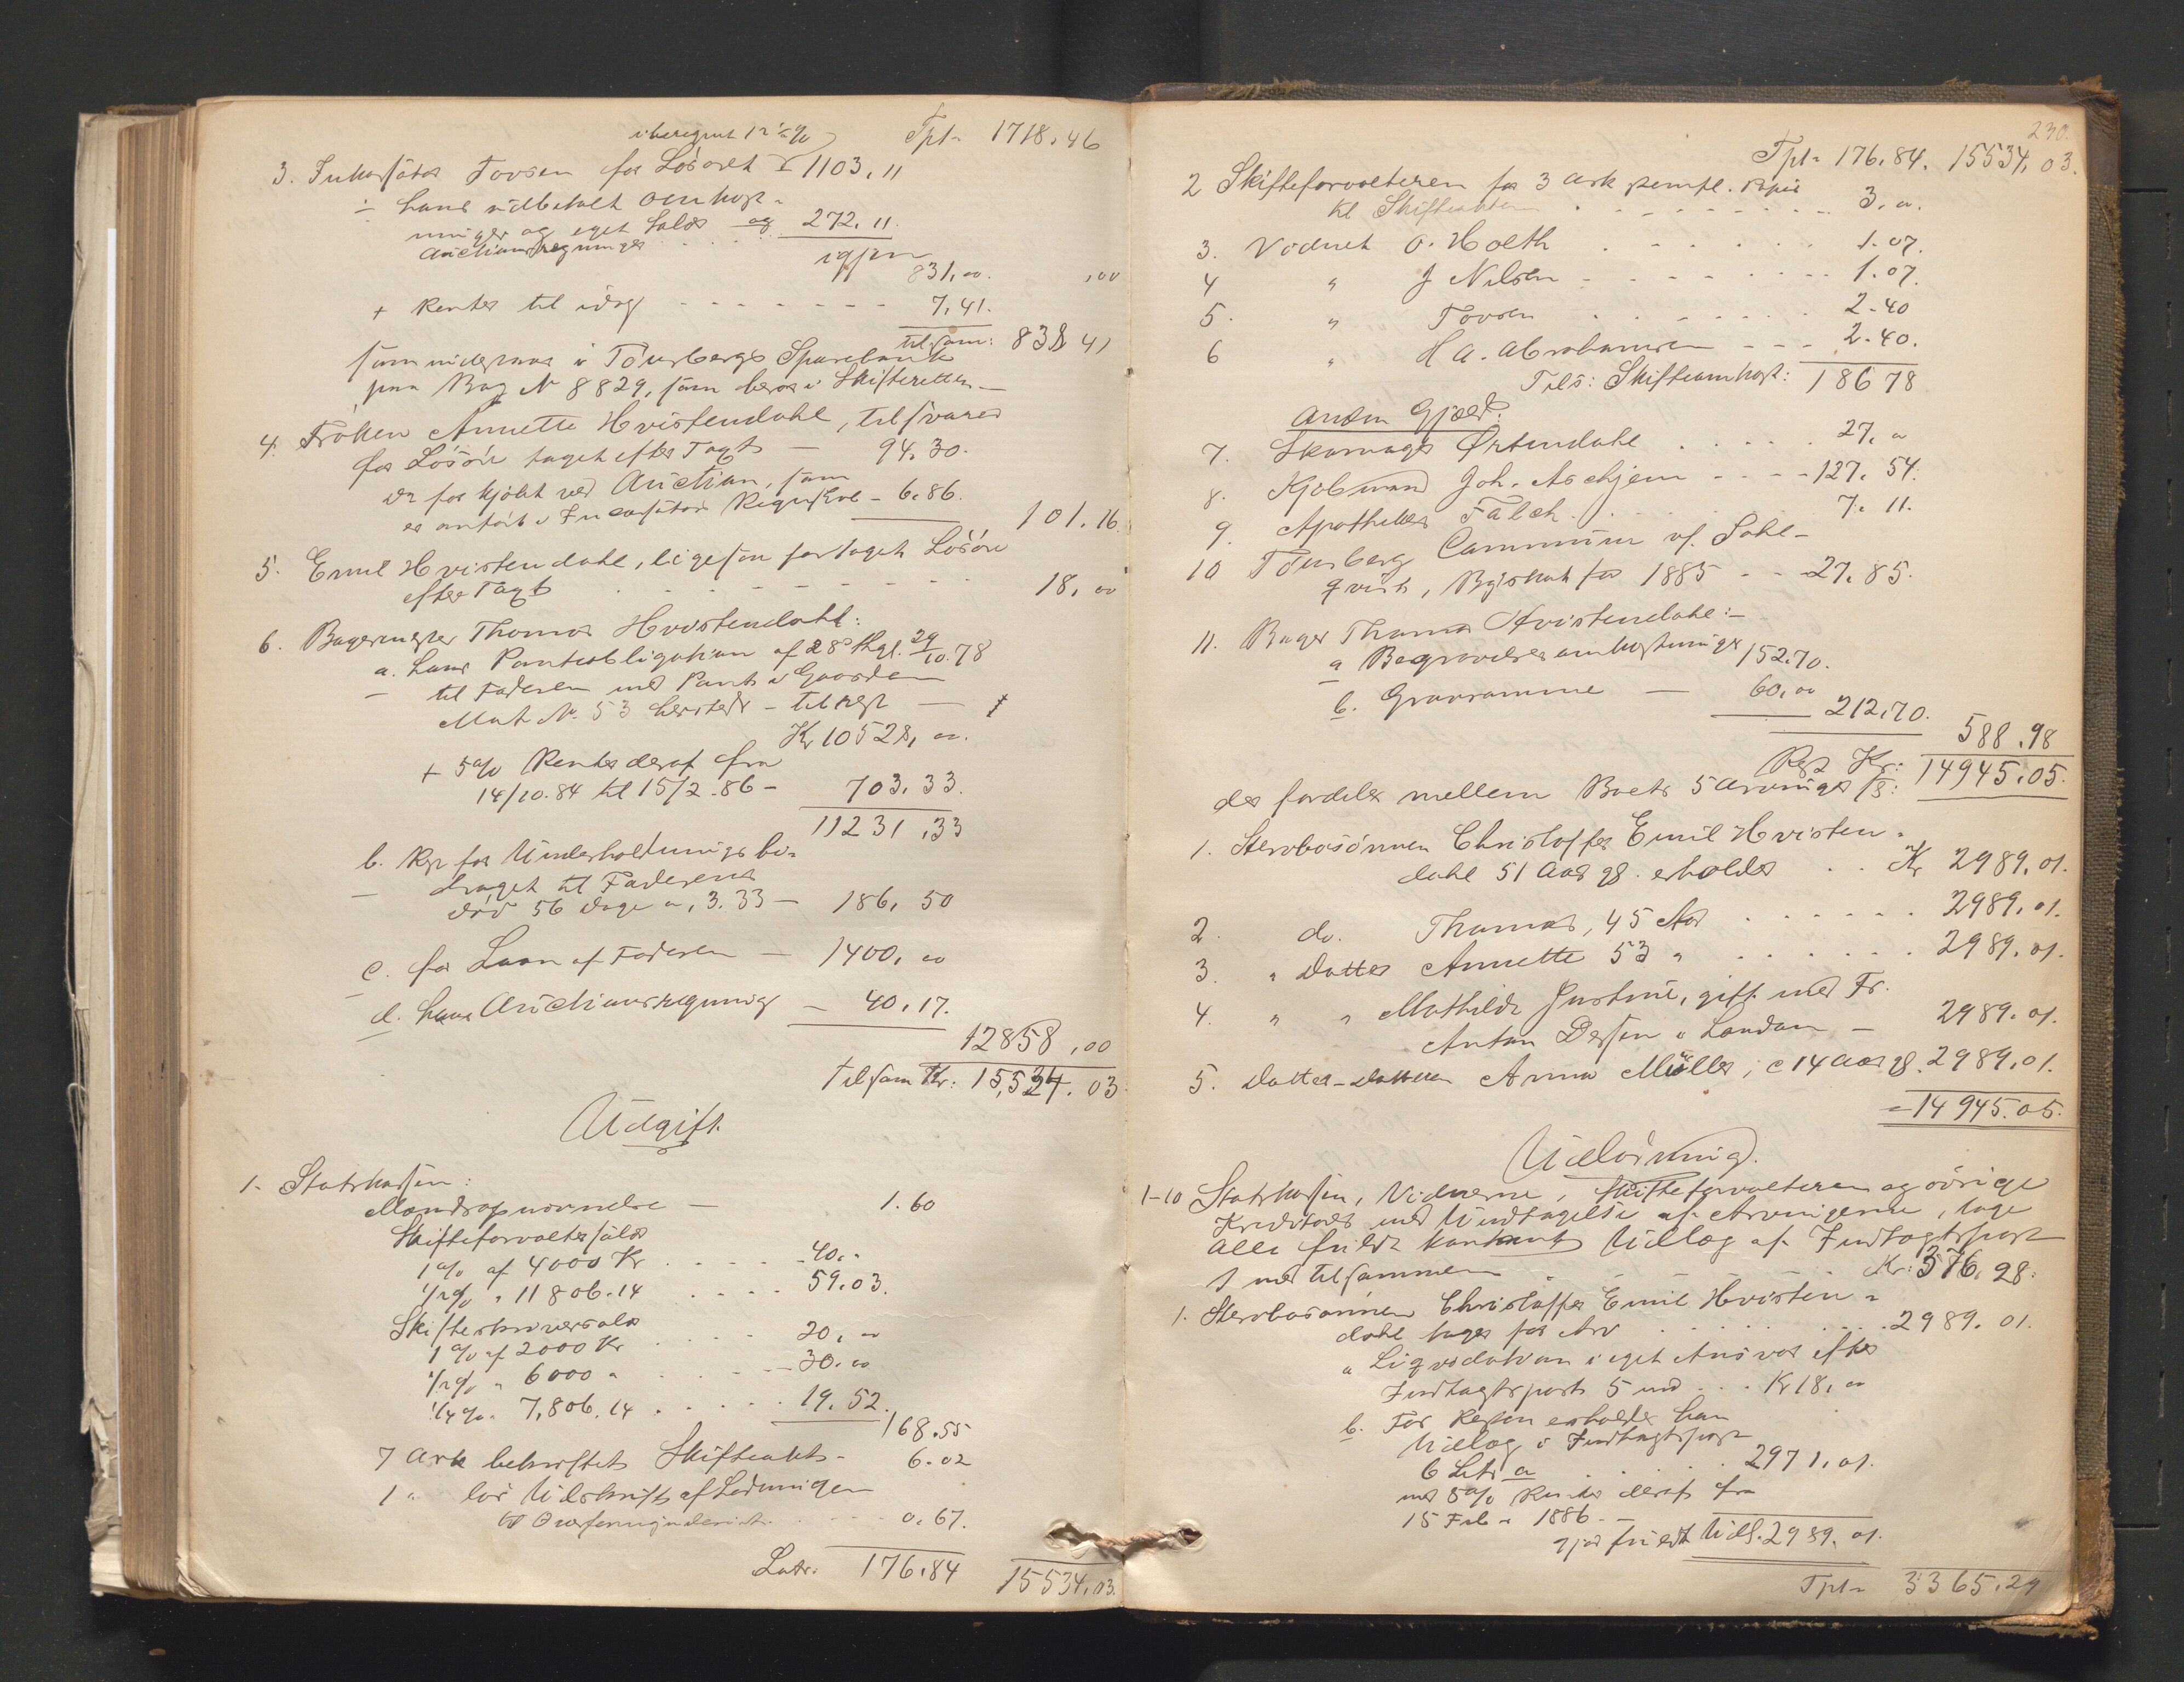 iberegnet 12½ % Tpt. 1718.46
3. Inkassator Tovsen for Løsøret 1103,11
÷ hans udbetalt Omkost-
ninger og eget Salær og 272.11.
Auctionsregninger
igjen 831,00. ,00
+ Renter til idag - - - - - - - 7,41.
tilsam: 838 41
som indestaar i Tönsbergs Sparebank
paa Bog № 8829, som beror i Skifteretten -
4. Fröken Annette Hvistendahl, tilsvarer
for Lösöre taget efter Taxt - 94.30.
Do for kjöbt ved Auction, som
er anfört i Incassators Regnskab - 6.86.
101.16
5. Emil Hvistendahl, ligesaa fortaget Lösöre
efter Taxt - - - - - - - 18,00
6. Bagermester Thomas Hvistendahl:
a. hans Pantobligation af 28 thgl. 29/10.78
til Faderen med Pant i Gaarden
Mat № 53 hersteds - til rest -
Kr 10528,00.
+ 5% Renter deraf fra
14/10.84 til 15/2.86 - 703.33.
11231,33
b. Rest for Underholdningsbi-
draget til Faderens
död 56 dage a, 3.33 - 186,50
c. for Laan af Faderen - 1400,00
d. hans Auctionsregning - 40.17.
12858,00
tilsam Kr: 15,534.03
Udgift.
1. Statskassen:
Mandragsnævnelse - 1.60
Skifteforvaltersalær
1% af 4000 Kr . . . . . 40.-
½% " 11806.14 . . . . 59.03.
Skifteskriversalær
1% af 2000 Kr . . . . 20,00
½% " 6000 " . . . . 30.00
¼% " 7,806.14 . . . . . 19.52.
168.55
7 Ark bekræftet Skifteakts - 6.02
1 " lös Udskrift af Lodningen
til Overformynderiet . . . 0.67.
Latr. 176.84 15534.03.
230.
Tpt. 176.84. 15534,03.
2 Skifteforvalteren for 3 Ark stempl. Papir
til Skifteakten . . . . . . . . 3.00.
3. Vidnet O. Holth . . . . . . 1.07.
4 " J Nilsen - - - - - - - - 1.07.
5. " Tovsen . . . . . . . 2.40
6 " H A. Abrahamsen - - - 2.40.
Tils: Skifteomkost: 186 78
Anden Gjæld:
7. Skomager Ørtendahl . . . . . 27,00
8. Kjöbmand Joh. Aschjem - - - - 127.54.
9. Apotheker Falch . . . . . 7.11.
10 Tönsberg Commune vf. Sohl-
qvist, Byskat for 1885 - - - 27.85.
11. Bager Thomas Hvistendahl: -
a Begravelsesomkostninger 152.70.
b. Gravramme - 60,00
212.70.
588.98
Rest Kr: 14945.05.
der fordeles mellem Boets 5 Arvinger s:
1. Sterbosönnen Christoffer Emil Hvisten-
dahl 51 Aar gl. erholder . . Kr 2989.01.
2. do. Thomas, 45 Aar . . . . . . 2989.01.
3. " Datter Annette 53 " . . . . . . 2989.01.
4. " " Mathilde Justine, gift med Fr.
Anton Dessen i London - 2989.01.
5. Datter-Datteren Anna Müller, c 14 Aar gl. 2989.01.
= 14945.05.
Udlodning.
1-10 Statskassen, Vidnerne, Skifteforvalteren og övrige
Kreditorer med Undtagelse af Arvingerne, tage
alle fuldt kontant Udlæg af Indtægtspost
1 med tilsammen . . . . Kr: 376.28.
1. Sterbosönnen Christoffer Emil Hvisten-
dahl tager for Arv . . . . . . . 2989.01.
a Liqvidation i eget Ansvar efter
Indtægtspost 5 med . . . Kr 18,00
b. For Resten erholder han
Udlæg i Indtægtspost
6 Litr a . . . . . 2971,01.
med 5% Renter deraf fra
15 Feb. 1886. -
gjør fuldt Udl. 2989.01.
Tpt. 3365.29